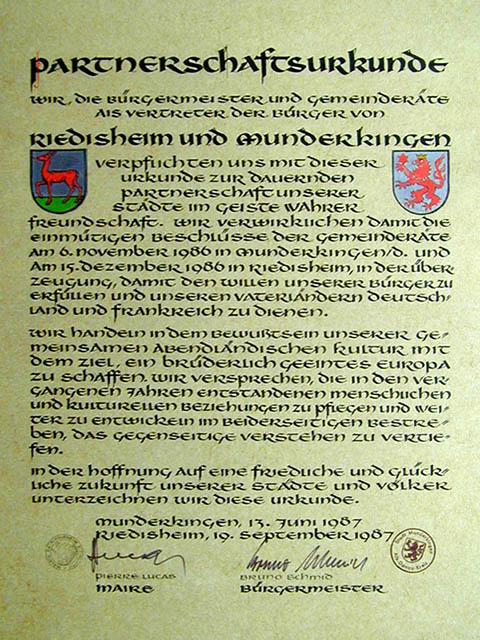 Partnerschaftsurkunde
Wir, die Bürgermeister und Gemeinderäte
als Vertreter der Bürger von
Riedisheim und Munderkingen
verpflichten uns mit dieser
Urkunde zur dauernden
Partnerschaft unserer
Städte im Geiste wahrer
Freundschaft. Wir verwirklichen damit die
einmütigen Beschlüsse der Gemeinderäte
am 6. November 1986 in Munderkingen/D. und
am 15. Dezember 1986 in Riedisheim, in der Über-
zeugung, damit den Willen unserer Bürger zu
erfüllen und unseren Vaterländern Deutsch-
land und Frankreich zu dienen.
Wir handeln in dem Bewußtsein unserer ge-
meinsamen abendländischen Kultur mit
dem Ziel, ein brüderlich geeintes Europa
zu schaffen. Wir versprechen, die in den ver-
gangenen Jahren entstandenen menschlichen
und kulturellen Beziehungen zu pflegen und wei-
ter zu entwickeln im beiderseitigen Bestre-
ben, das gegenseitige Verstehen zu vertie-
fen.
In der Hoffnung auf eine friedliche und glück-
liche Zukunft unserer Städte und Völker
unterzeichnen wir diese Urkunde.
Munderkingen, 13. Juni 1987
Riedisheim, 19. September 1987
Pierre Lucas
Maire
Bruno Schmid
Bürgermeister